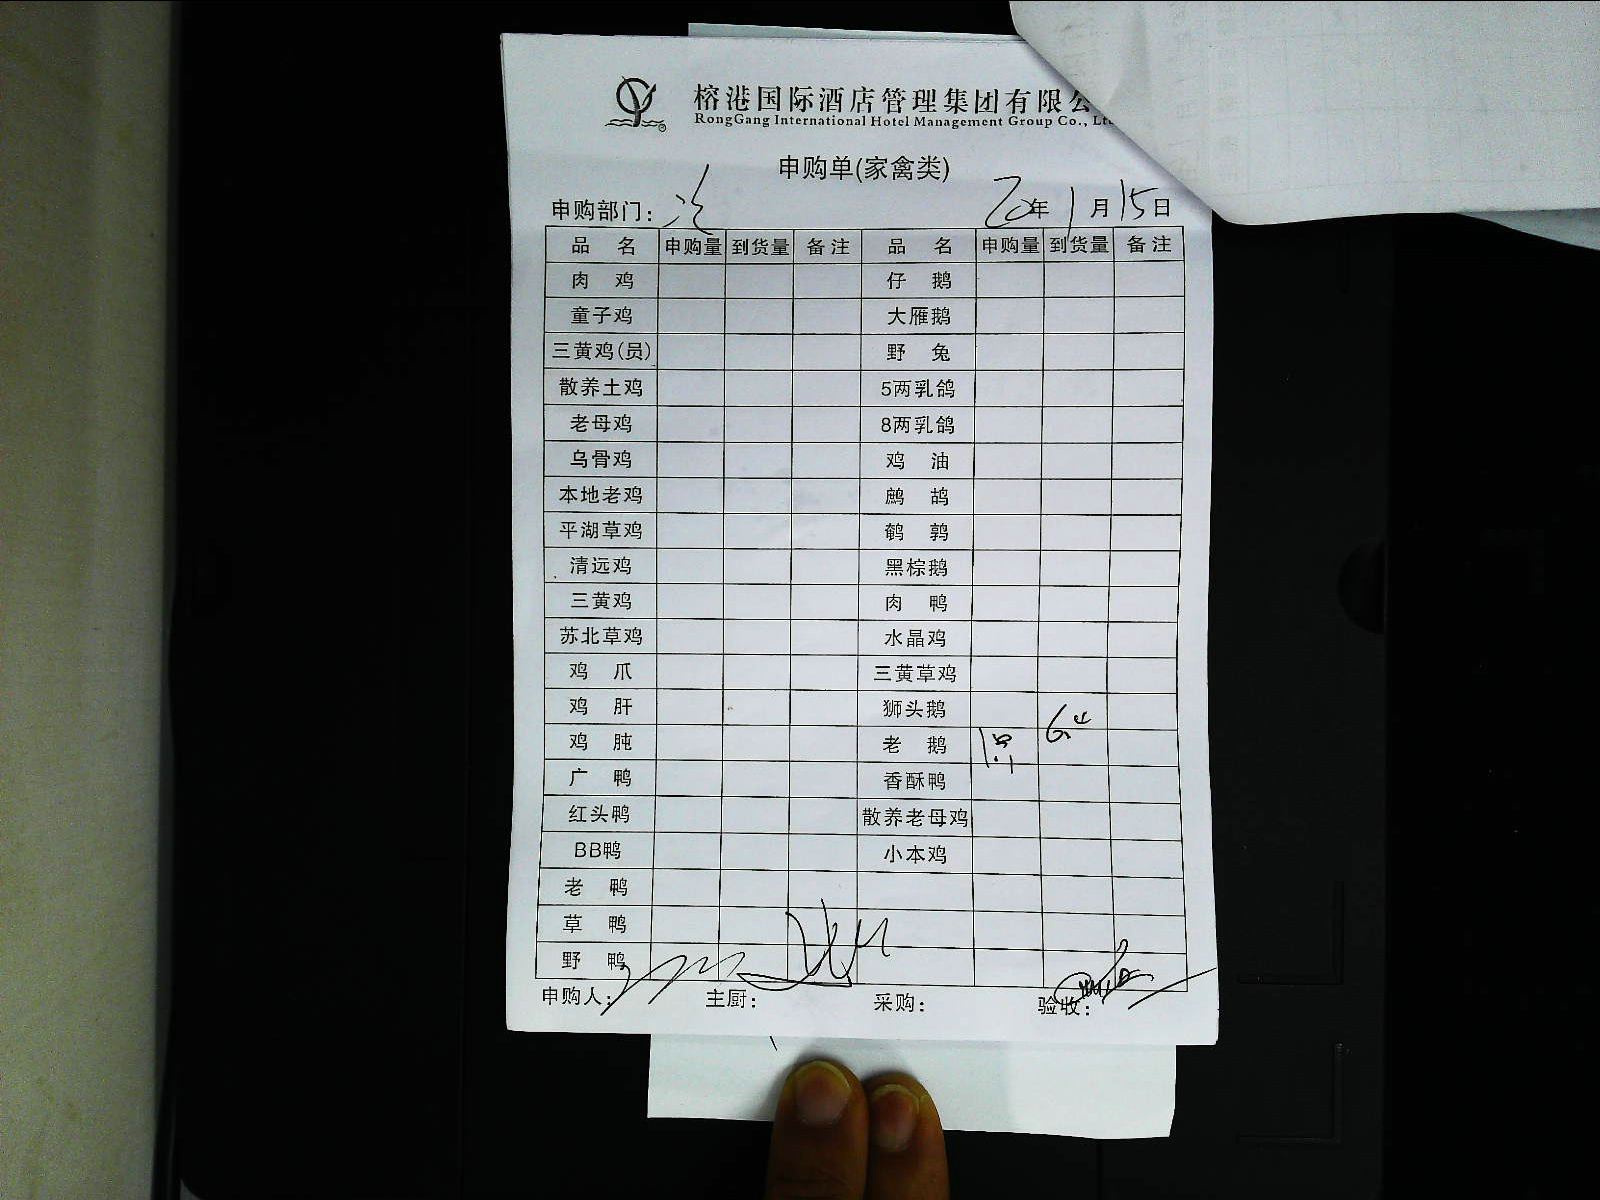 榕港国际酒店管理集团有限公
RongGang International Hotel Management Group Co., Lt
申购单(家禽类)
申购部门: 20年1月15日
品名 申购量 到货量 备注 品名 申购量 到货量 备注
肉鸡 仔鹅
童子鸡 大雁鹅
三黄鸡(员) 野兔
散养土鸡 5两乳鸽
老母鸡 8两乳鸽
乌骨鸡 鸡油
本地老鸡 鹧鸪
平湖草鸡 鹌鹑
清远鸡 黑棕鹅
三黄鸡 肉鸭
苏北草鸡 水晶鸡
鸡爪 三黄草鸡
鸡肝 狮头鹅
鸡肫 老鹅
广鸭 香酥鸭
红头鸭 散养老母鸡
BB鸭 小本鸡
老鸭
草鸭
野鸭
申购人: 主厨: 采购: 验收: